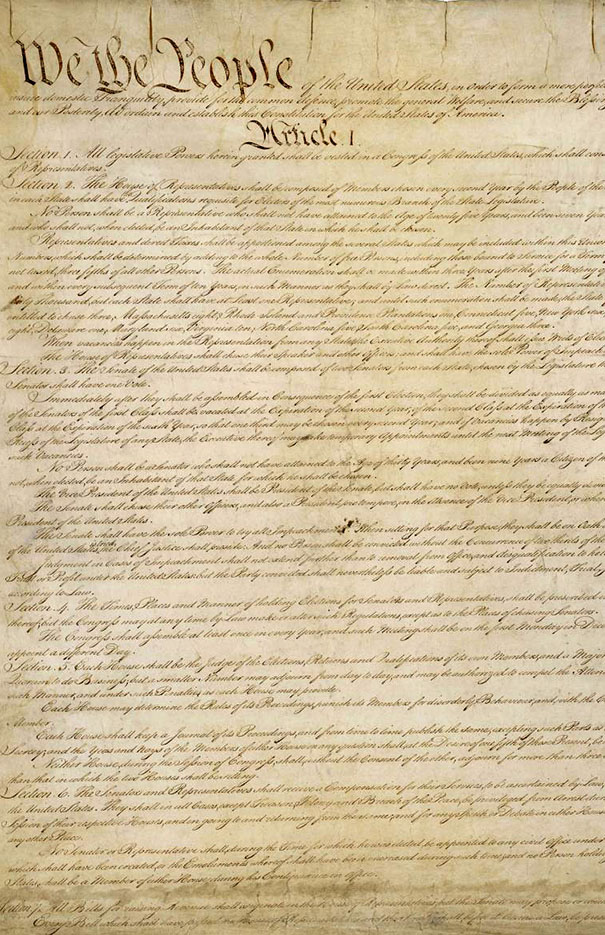 We the People of the United States, in Order to form a more perfe
insure domestic Tranquility, provide for the common defence, promote the general Welfare, and secure the Blessing
and our Posterity, do ordain and establish this Constitution for the United States of America.
Article. I.
Section. 1. All legislative Powers herein granted shall be vested in a Congress of the United States, which shall cons
of Representatives.
Section. 2. The House of Representatives shall be composed of Members chosen every second Year by the People of the
in each State shall have Qualifications requisite for Electors of the most numerous Branch of the State Legislature.
No Person shall be a Representative who shall not have attained to the Age of twenty five Years, and been seven Year
and who shall not, when elected, be an Inhabitant of that State in which he shall be chosen.
Representatives and direct Taxes shall be apportioned among the several States which may be included within this Union
Numbers, which shall be determined by adding to the whole Number of free Persons, including those bound to Service for a Term
not taxed, three fifths of all other Persons. The actual Enumeration shall be made within three Years after the first Meeting of
and within every subsequent Term of ten Years, in such Manner as they shall by Law direct. The Number of Representative
thirty Thousand, but each State shall have at Least one Representative; and until such enumeration shall be made, the State
entitled to chuse three, Massachusetts eight, Rhode Island and Providence Plantations one, Connecticut five, New York six
eight, Delaware one, Maryland six, Virginia ten, North Carolina five, South Carolina five, and Georgia three.
When vacancies happen in the Representation from any State, the Executive Authority thereof shall issue Writs of Electi
The House of Representatives shall chuse their Speaker and other Officers; and shall have the sole Power of Impeachm
Section. 3. The Senate of the United States shall be composed of two Senators from each State, chosen by the Legislature th
Senator shall have one Vote.
Immediately after they shall be assembled in Consequence of the first Election, they shall be divided as equally as ma
of the Senators of the first Class shall be vacated at the Expiration of the second Year, of the second Class at the Expiration of th
Class at the Expiration of the sixth Year, so that one third may be chosen every second Year; and if Vacancies happen by Resig
Recess of the Legislature of any State, the Executive thereof may make temporary Appointments until the next Meeting of the Legi
such Vacancies.
No Person shall be a Senator who shall not have attained to the Age of thirty Years, and been nine Years a Citizen of th
not, when elected, be an Inhabitant of that State for which he shall be chosen.
The Vice President of the United States shall be President of the Senate, but shall have no Vote, unless they be equally div
The Senate shall chuse their other Officers, and also a President pro tempore, in the Absence of the Vice President, or when
President of the United States.
The Senate shall have the sole Power to try all Impeachments. When sitting for that Purpose, they shall be on Oath
of the United States, the Chief Justice shall preside: And no Person shall be convicted without the Concurrence of two thirds of the
Judgment in Cases of Impeachment shall not extend further than to removal from Office, and disqualification to ho
Trust or Profit under the United States: but the Party convicted shall nevertheless be liable and subject to Indictment, Trial,
according to Law.
Section. 4. The Times, Places and Manner of holding Elections for Senators and Representatives, shall be prescribed in
thereof; but the Congress may at any time by Law make or alter such Regulations, except as to the Places of chusing Senators.
The Congress shall assemble at least once in every Year, and such Meeting shall be on the first Monday in Dece
appoint a different Day.
Section. 5. Each House shall be the Judge of the Elections, Returns and Qualifications of its own Members, and a Major
Quorum to do Business; but a smaller Number may adjourn from day to day, and may be authorized to compel the Atten
such Manner, and under such Penalties as each House may provide.
Each House may determine the Rules of its Proceedings, punish its Members for disorderly Behaviour, and, with the C
Member.
Each House shall keep a Journal of its Proceedings, and from time to time publish the same, excepting such Parts as
Secrecy; and the Yeas and Nays of the Members of either House on any question shall, at the Desire of one fifth of those Present, be
Neither House, during the Session of Congress, shall, without the Consent of the other, adjourn for more than three
than that in which the two Houses shall be sitting.
Section. 6. The Senators and Representatives shall receive a Compensation for their Services, to be ascertained by Law,
the United States. They shall in all Cases, except Treason, Felony and Breach of the Peace, be privileged from Arrest duri
Session of their respective Houses, and in going to and returning from the same; and for any Speech or Debate in either Hous
any other Place.
No Senator or Representative shall, during the Time for which he was elected, be appointed to any civil Office under
which shall have been created, or the Emoluments whereof shall have been encreased during such time; and no Person holdin
States, shall be a Member of either House during his Continuance in Office.
Section. 7. All Bills for raising Revenue shall originate in the House of Representatives; but the Senate may propose or conc
Every Bill which shall have passed the House of Representatives and the Senate, shall, before it become a Law, be prese